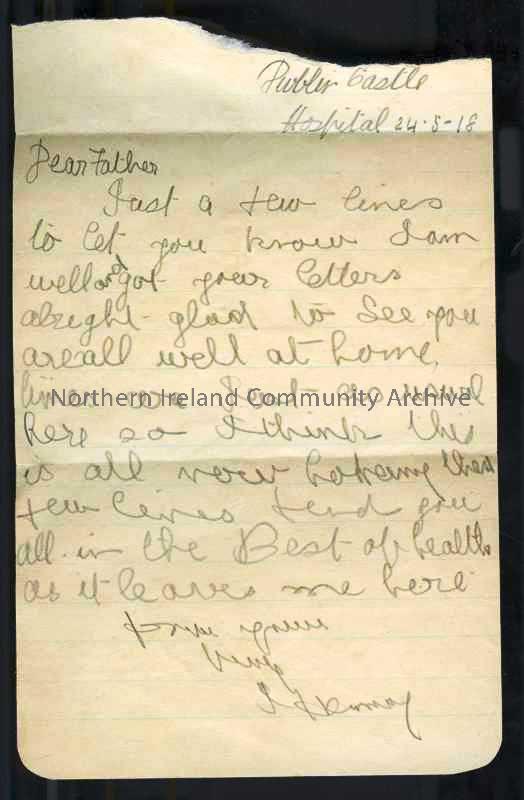 Dublin Castle
Hospital 24-5-18
Dear Father
Just a few lines
to let you know I am
well and got your letters
alright glad to See you
are all well at home
times are Just as usual
Northern Ireland Community Archive
here so I think this
is all now hoping these
few lines find you
all in the Best of health
as it leaves me here
from your